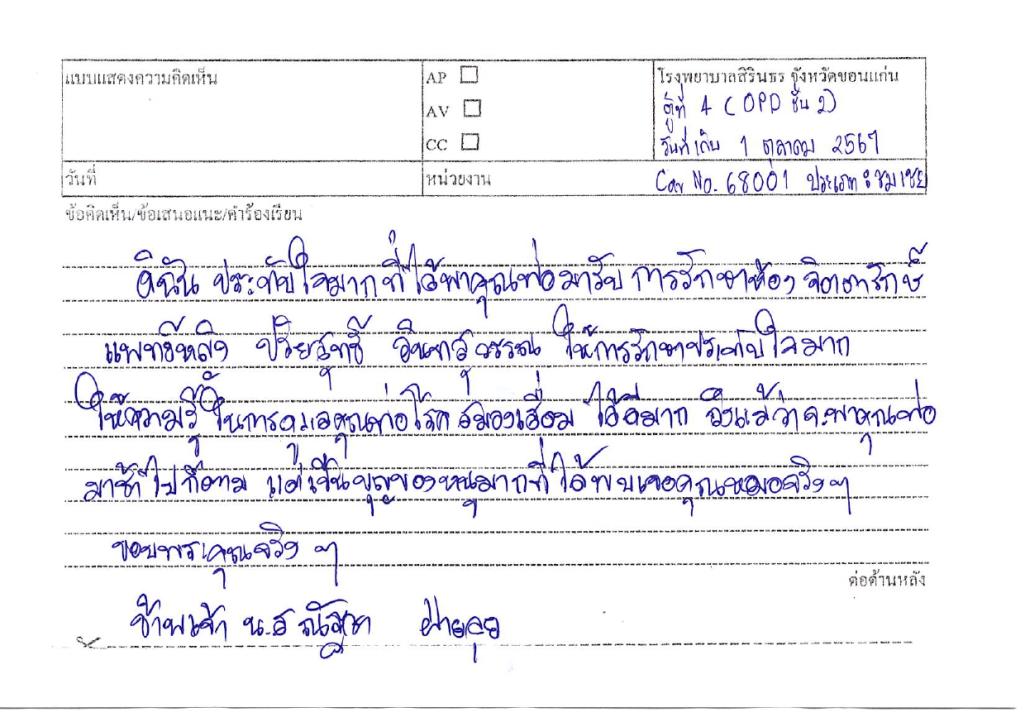 แบบแสดงความคิดเห็น
AP
AV
CC
โรงพยาบาลสิรินธร จังหวัดขอนแก่น
ตู้ที่ 4 (OPD ชั้น 2)
วันที่เก็บ 1 ตุลาคม 2567
วันที่
หน่วยงาน
Car No. 68001 ประเภท : ชมเชย
ข้อคิดเห็น/ข้อเสนอแนะ/คำร้องเรียน
ดิฉัน ประทับใจมากที่ได้พาคุณพ่อมารับ การรักษาห้อง จิตตารักษ์
แพทย์หญิง อินทสุวรรณ ให้การรักษาประทับใจมาก
ให้ความรู้ในการดูแลคุณพ่อโรคสมองเสื่อม ได้ดีมาก ถึงแม้ว่าจะพาคุณพ่อ
มาช้าไปก็ตาม แต่เป็นบุญของหนูมากที่ได้พบเจอคุณหมอจริงๆ
ขอบพระคุณจริง ๆ
ต่อด้านหลัง
ข้าพเจ้า น.ส